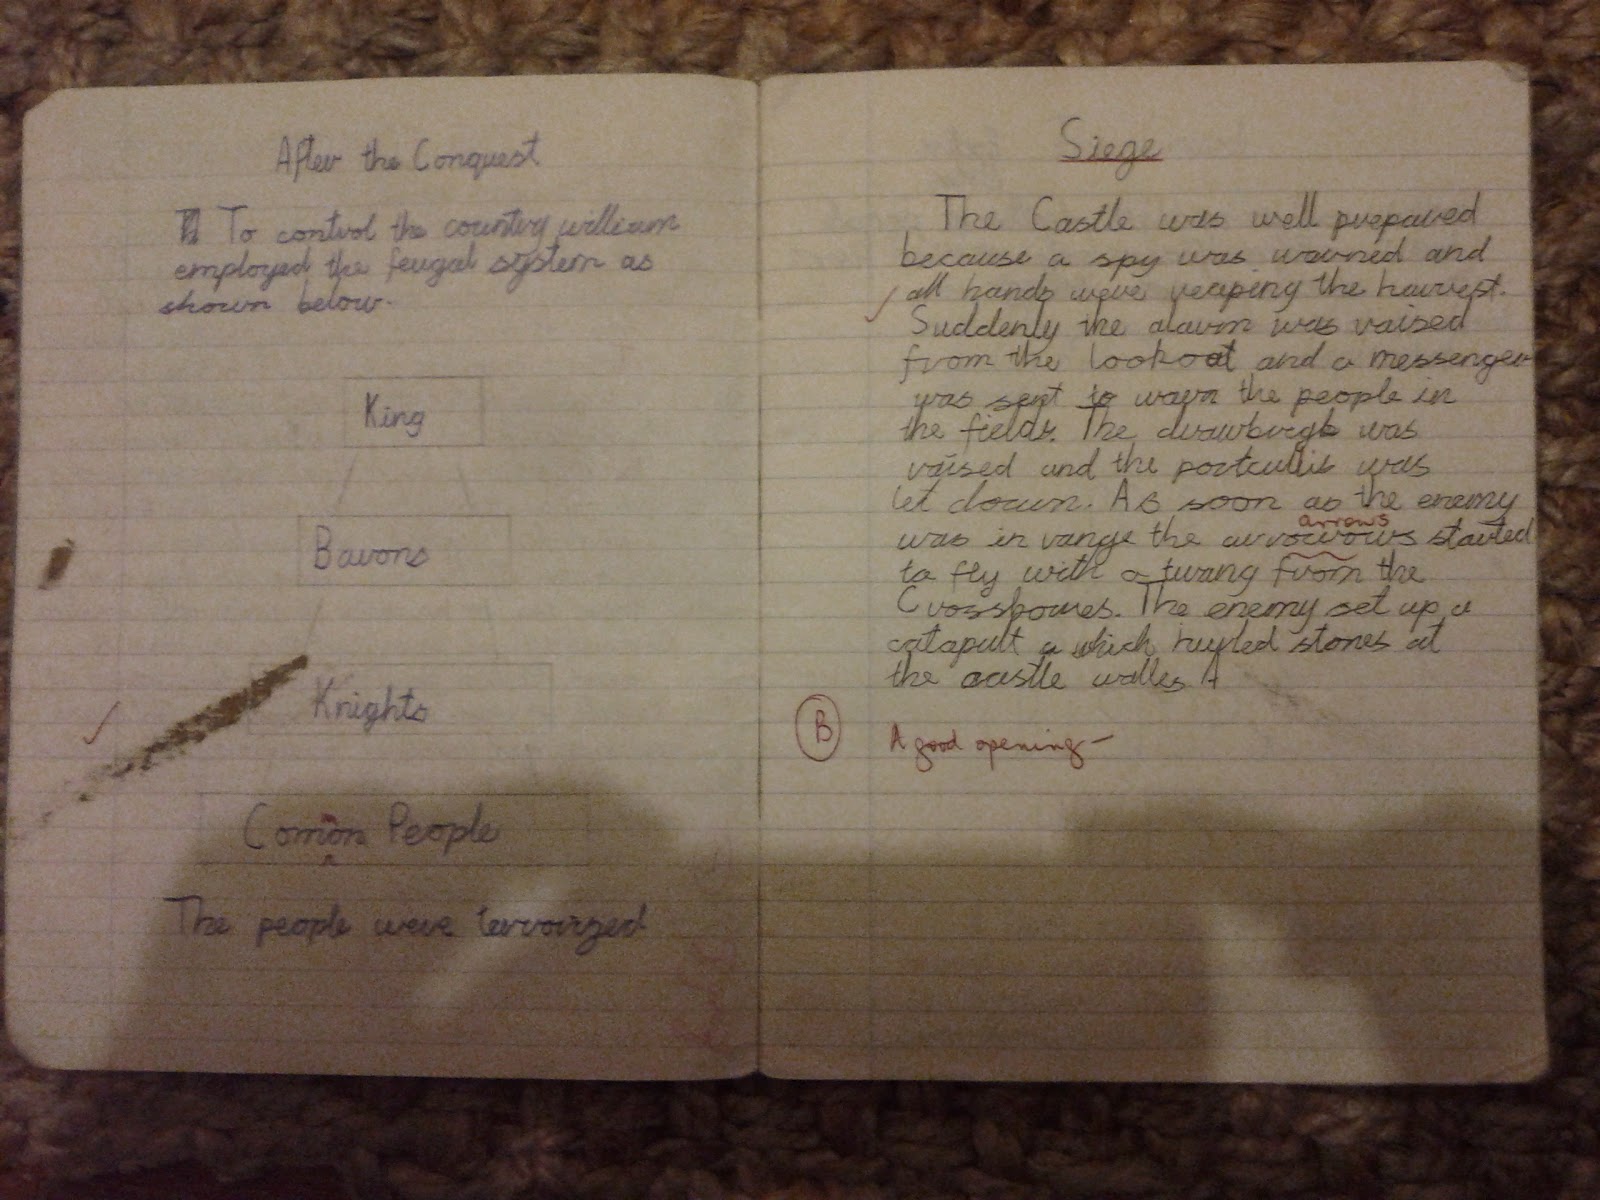 After the Conquest
To control the country william
employed the feugal system as
shown below.
King
Barons
Knights
Comon People
The people were terroirzed
Siege
The Castle was well prepared
because a spy was warned and
all hands were reaping the harvest.
Suddenly the alarm was raised
from the lookoat and a messenger
was sent to warn the people in
the fields. The was
raised and the portcullis was
let down. As soon as the enemy
arrows
was in range the arrowrows started
to fly with a twang from the
Crossbowes. The enemy set up a
catapult a which hurled stones at
the castle walles.
B
A good opening-